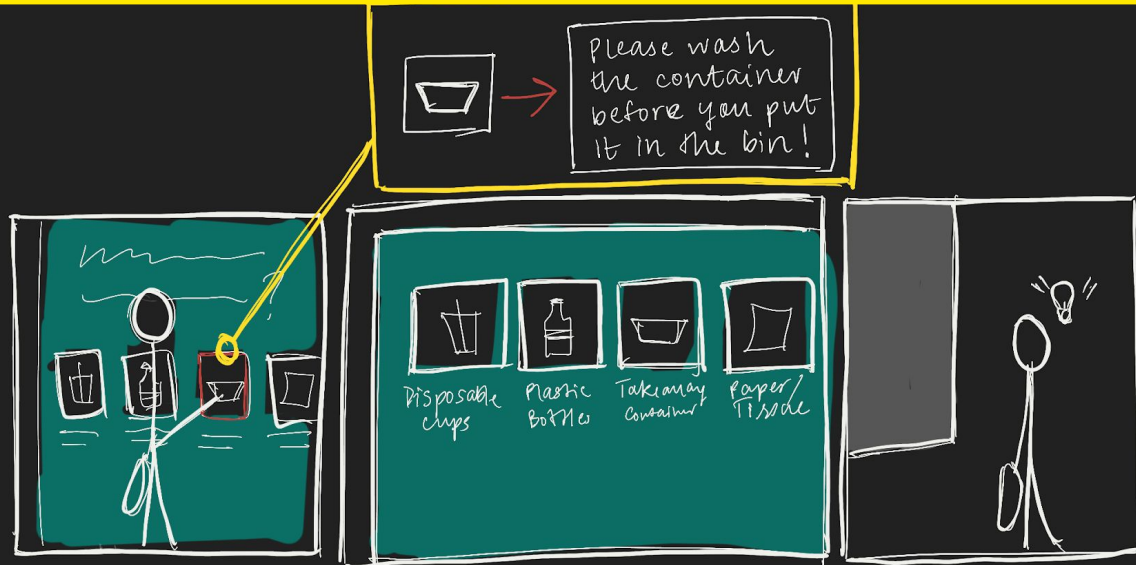 Please wash
the container
before you put
it in the bin!
Disposable
cups
Plastic
Bottles
Takeaway
Container
Paper/
Tissue